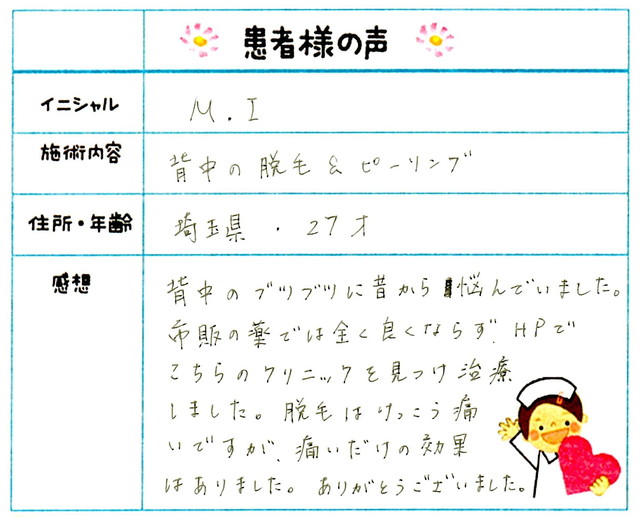 患者様の声
イニシャル M.I
施術内容 背中の脱毛&ピーリング
住所・年齢 埼玉県・27才
感想 背中のブツブツに昔から悩んでいました。
市販の薬では全く良くならず、HPで
こちらのクリニックを見つけ治療
しました。脱毛はけっこう痛
いですが、痛いだけの効果
はありました。ありがとうございました。